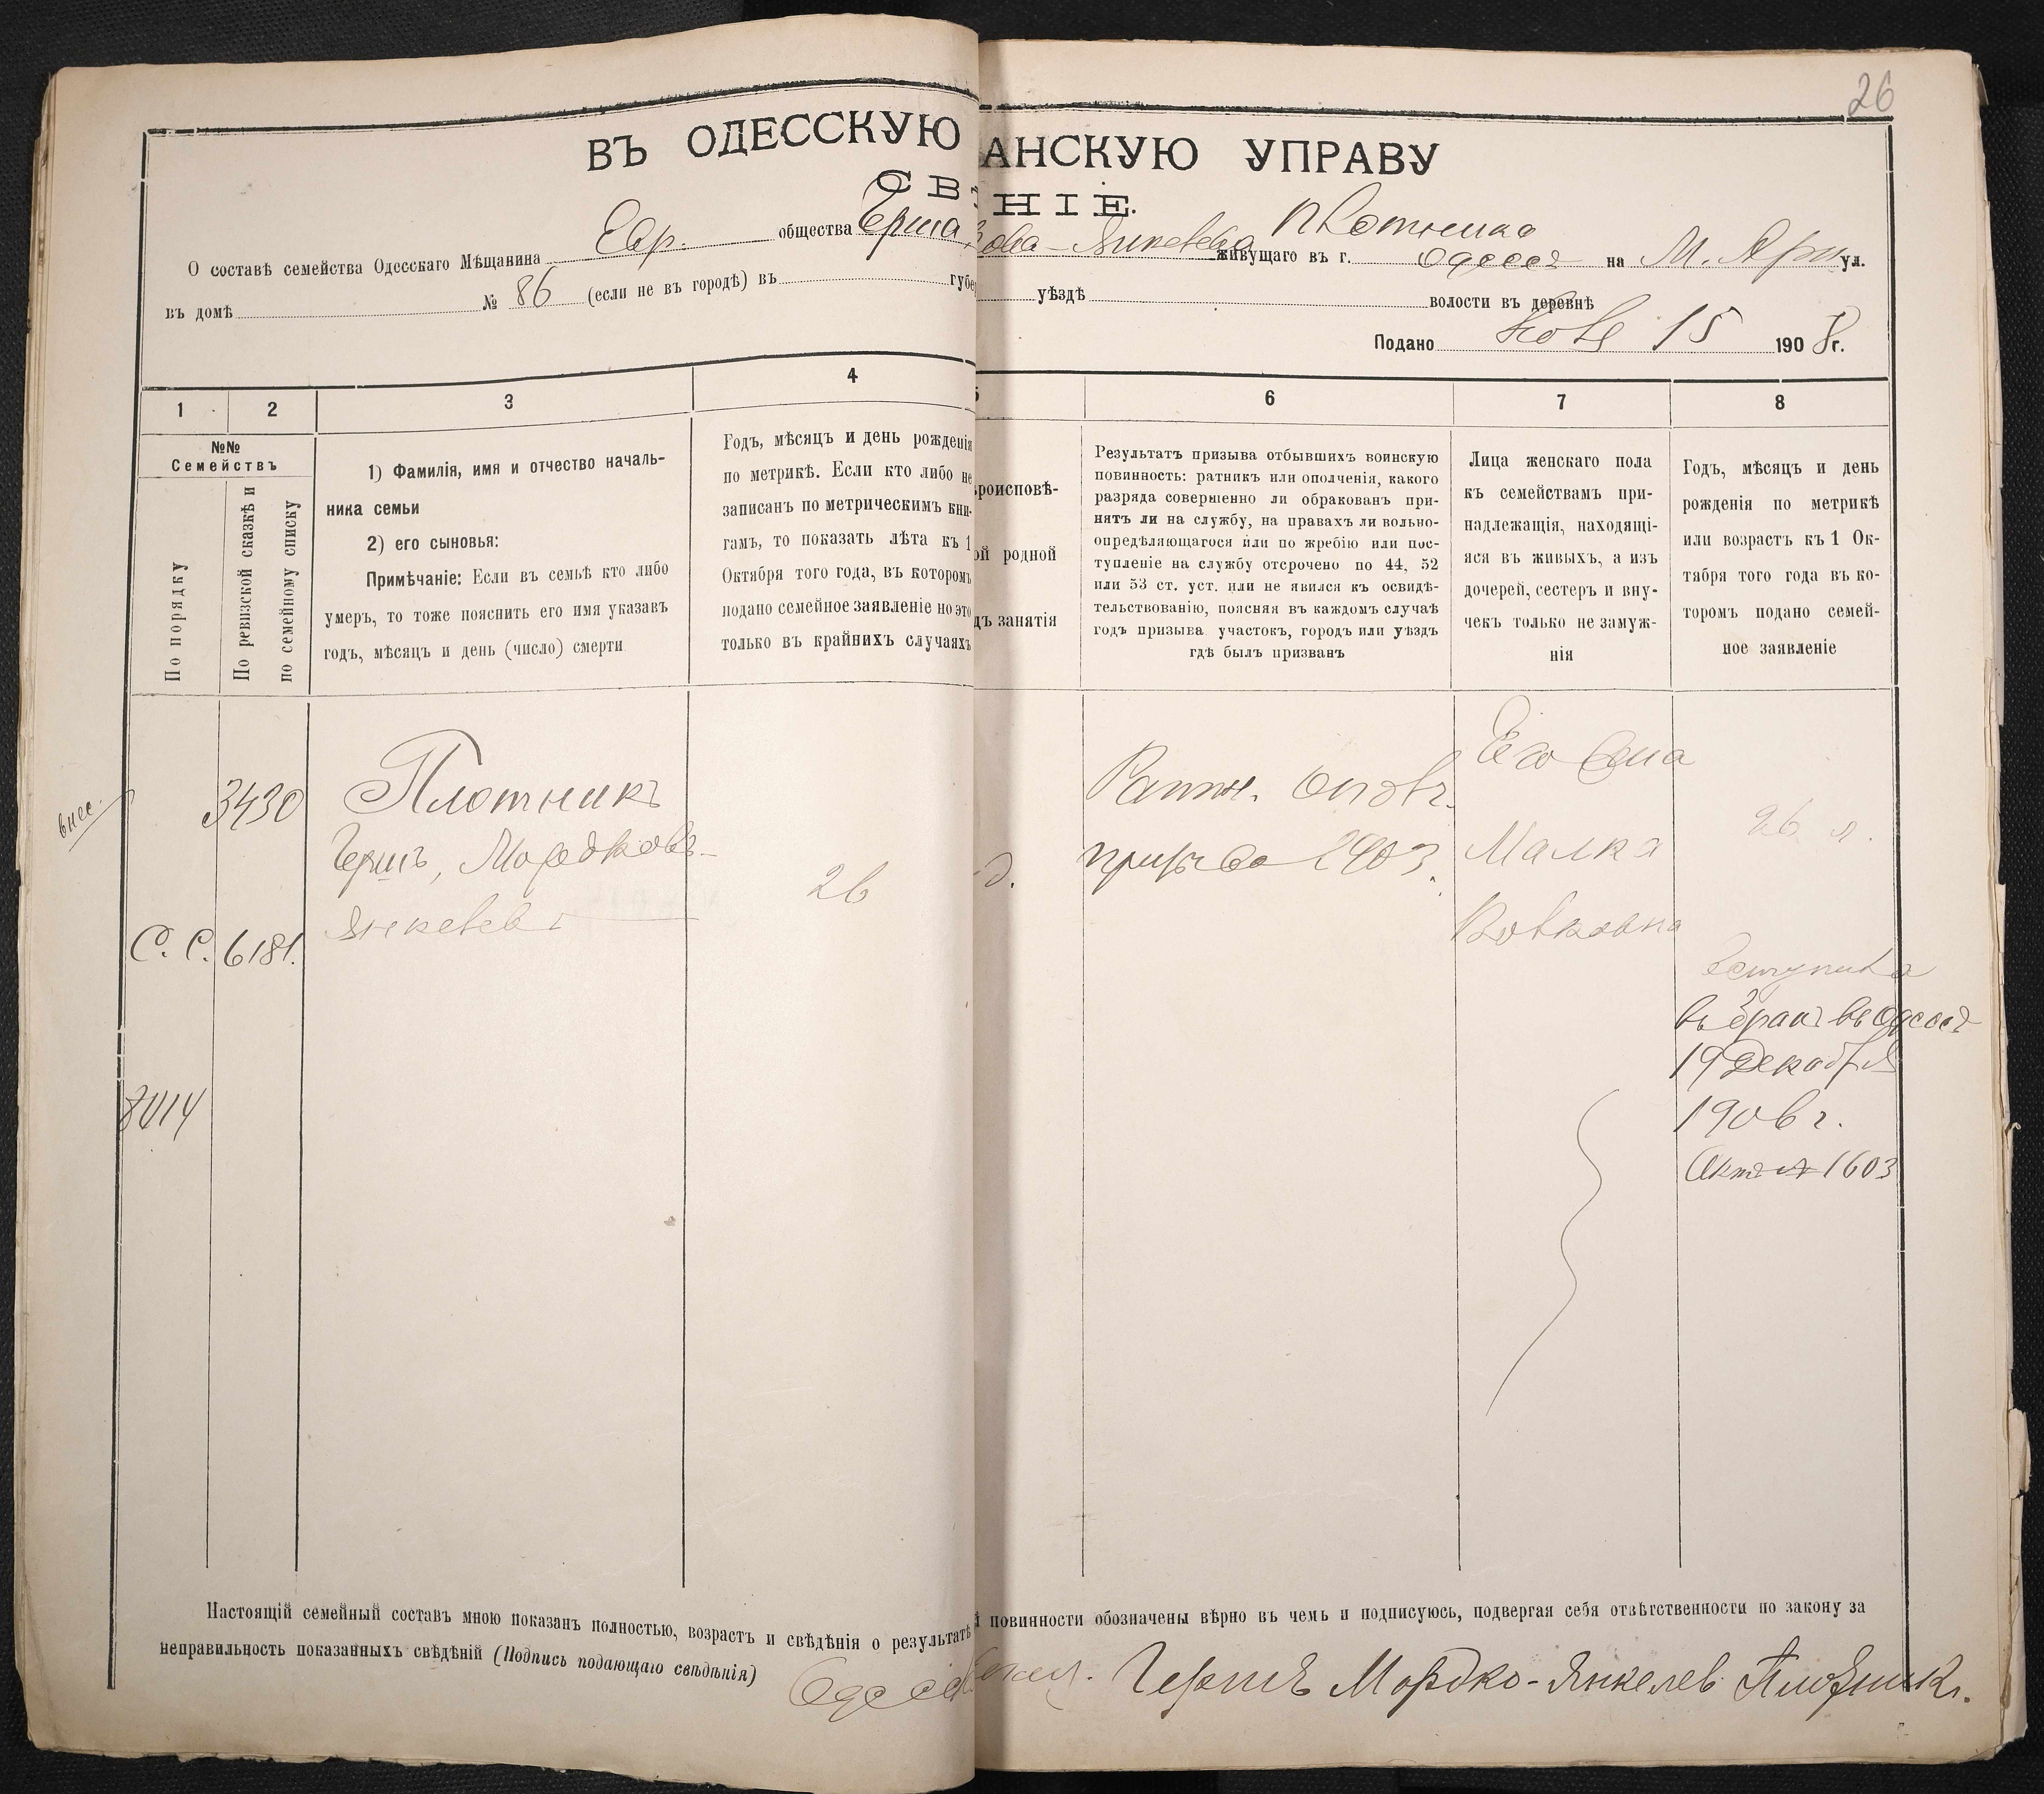 26
ВЪ ОДЕССКУЮ АНСКУЮ УПРАВУ
СВ НІЕ.
О составѣ семейства Одесскаго Мѣщанина Евр. общества Герша Янкелева Плотника живущаго въ г. Одессѣ на М. Арн ул.
въ домѣ № 86 (если не въ городѣ) въ губе уѣздѣ волости въ деревнѣ
Подано Нояб 15 1908 г.
1 2 3 4 5 6 7 8
№№
Семействъ
По порядку
По ревизской сказкѣ и
по семейному списку
1) Фамилія, имя и отчество началь-
ника семьи
2) его сыновья:
Примѣчаніе: Если въ семьѣ кто либо
умеръ, то тоже пояснить его имя указавъ
годъ, мѣсяцъ и день (число) смерти
Годъ, мѣсяцъ и день рожденія
по метрикѣ. Если кто либо не
записанъ по метрическимъ кни-
гамъ, то показать лѣта къ 1
Октября того года, въ которомъ
подано семейное заявленіе но это
только въ крайнихъ случаяхъ
роисповѣ-
ой родной
дъ занятія
Результатъ призыва отбывшихъ воинскую
повинность: ратникъ или ополченія, какого
разряда совершенно ли обракованъ при-
нятъ ли на службу, на правахъ ли вольно-
опредѣляющагося или по жребію или пос-
тупленіе на службу отсрочено по 44, 52
или 53 ст. уст. или не явился къ освидѣ-
тельствованію, поясняя въ каждомъ случаѣ
годъ призыва участокъ, городъ или уѣздъ
гдѣ былъ призванъ
Лица женскаго пола
къ семействамъ при-
надлежащія, находящі-
яся въ живыхъ, а изъ
дочерей, сестеръ и вну-
чекъ только не замуж-
нія
Годъ, мѣсяцъ и день
рожденія по метрикѣ
или возрастъ къ 1 Ок-
тября того года въ ко-
торомъ подано семей-
ное заявленіе
внес.
3430
С. С. 6181.
8414
Плотникъ
Гершъ, Мордковъ-
Янкелевъ
26
д.
Ратн. опол.
призыва 1903.
Его жена
Малка
Вольковна
26 л.
Вступила
въ бракъ въ Одессѣ
19 Декабря
1906 г.
Актъ № 1603
Настоящій семейный составъ мною показанъ полностью, возрастъ и свѣдѣнія о результатѣ й повинности обозначены вѣрно въ чемъ и подписуюсь, подвергая себя отвѣтственности по закону за
неправильность показанныхъ свѣдѣній (Подпись подающаго свѣдѣнія)
Гершъ Мордко-Янкелев Плотникъ.